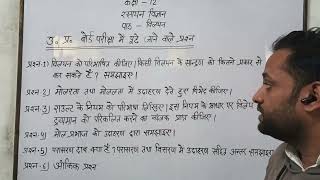 कक्षा - 12
रसायन विज्ञान
पाठ - विलयन
उ० प्र० बोर्ड परीक्षा में पूछे जाने वाले प्रश्न
प्रश्न-1) विलयन को परिभाषित कीजिए। किसी विलयन के सान्द्रण को कितने प्रकार से
कर सकते हैं? समझाइए।
प्रश्न-2) मोलरता तथा मोललता में उदाहरण देते हुए विभेद कीजिए।
प्रश्न-3) राउल्ट के नियम की परिभाषा लिखिए। इस नियम के आधार पर विलेय
को परिकलित करने का व्यंजक प्राप्त कीजिए।
प्रश्न-4) मोल प्रभाज को उदाहरण द्वारा समझाइए।
प्रश्न-5) परासरण दाब क्या है? परासरण तथा विसरण में उदाहरण सहित अन्तर समझाइए
प्रश्न-6) आंकिक प्रश्न